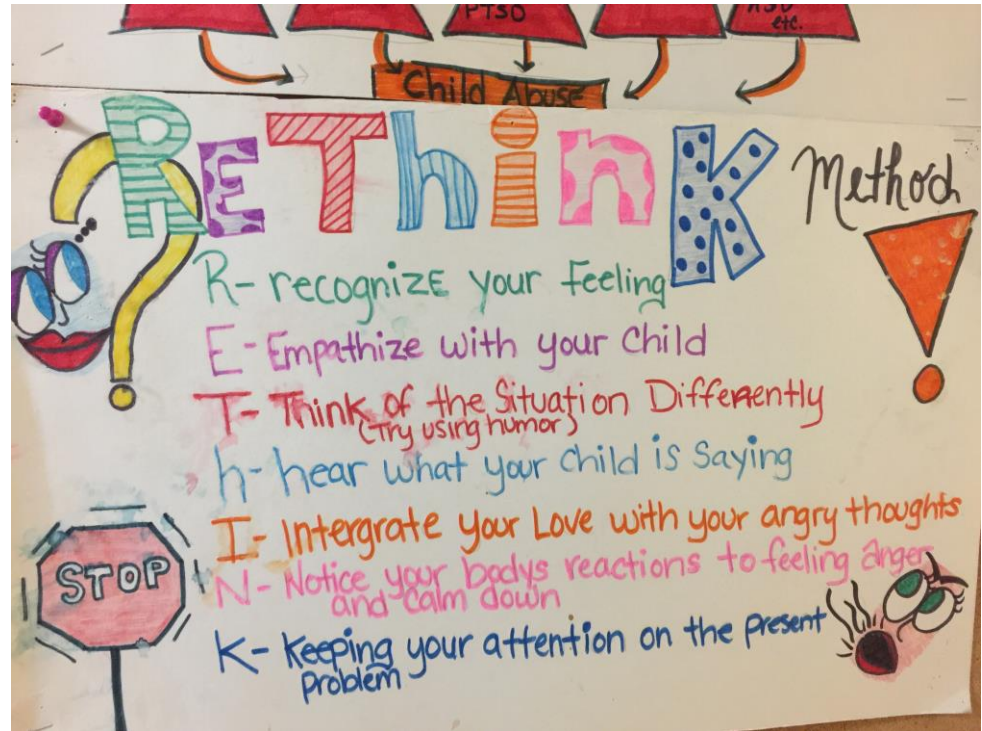 PTSD
etc.
Child Abuse
ReThinK Method
R- recognize your feeling
E- Empathize with your child
T- Think of the Situation Differently
(Try using humor)
h- hear what your child is Saying
I- Intergrate your Love with your angry thoughts
N- Notice your bodys reactions to feeling anger
and calm down
K- Keeping your attention on the present
problem
STOP